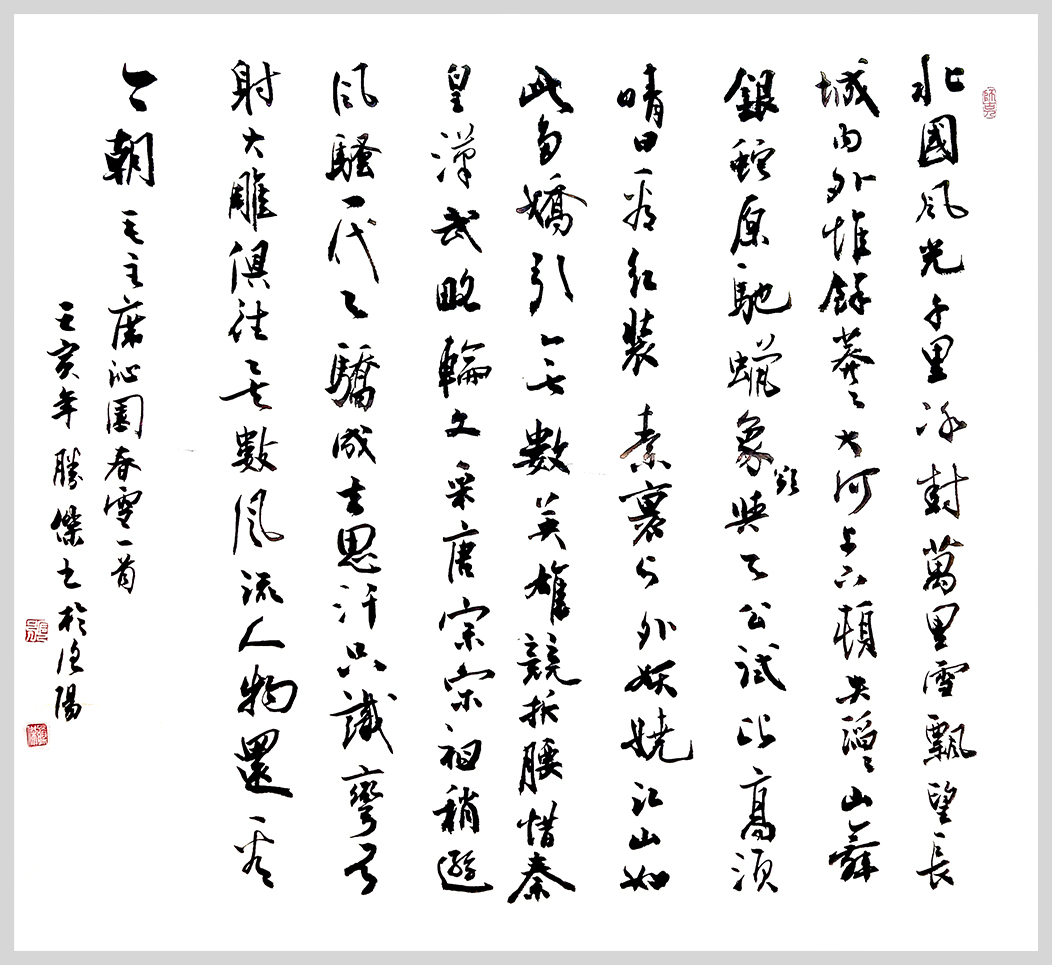 北國風光千里冰封萬里雪飄望長
城内外惟餘莽々大河上下頓失滔々山舞
銀蛇原馳蠟象欲與天公試比高須
晴日看紅裝素裹分外妖嬈江山如
此多嬌引無數英雄競折腰惜秦
皇漢武略輸文采唐宗宋祖稍遜
風騷一代天驕成吉思汗只識彎弓
射大雕俱往矣數風流人物還看
今朝 毛主席沁園春雪一首
亥年 勝傑書於陽